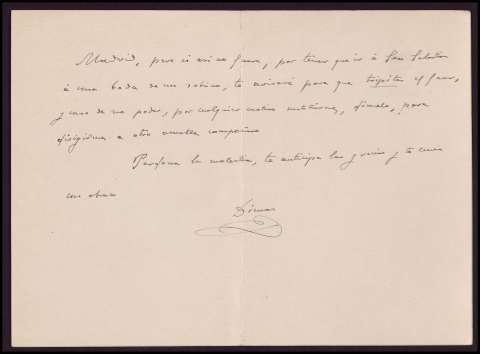 Madrid, pero si así no fuera, por tener que ir á San
á una boda de un sobrino, te avisaré para que repitas el favor,
y caso de no poder, por cualquier motivo, dímelo, para
dirigirme a otro compañero
Perdona la molestia, te anticipa las gracias y te envia
un abrazo
Dimas